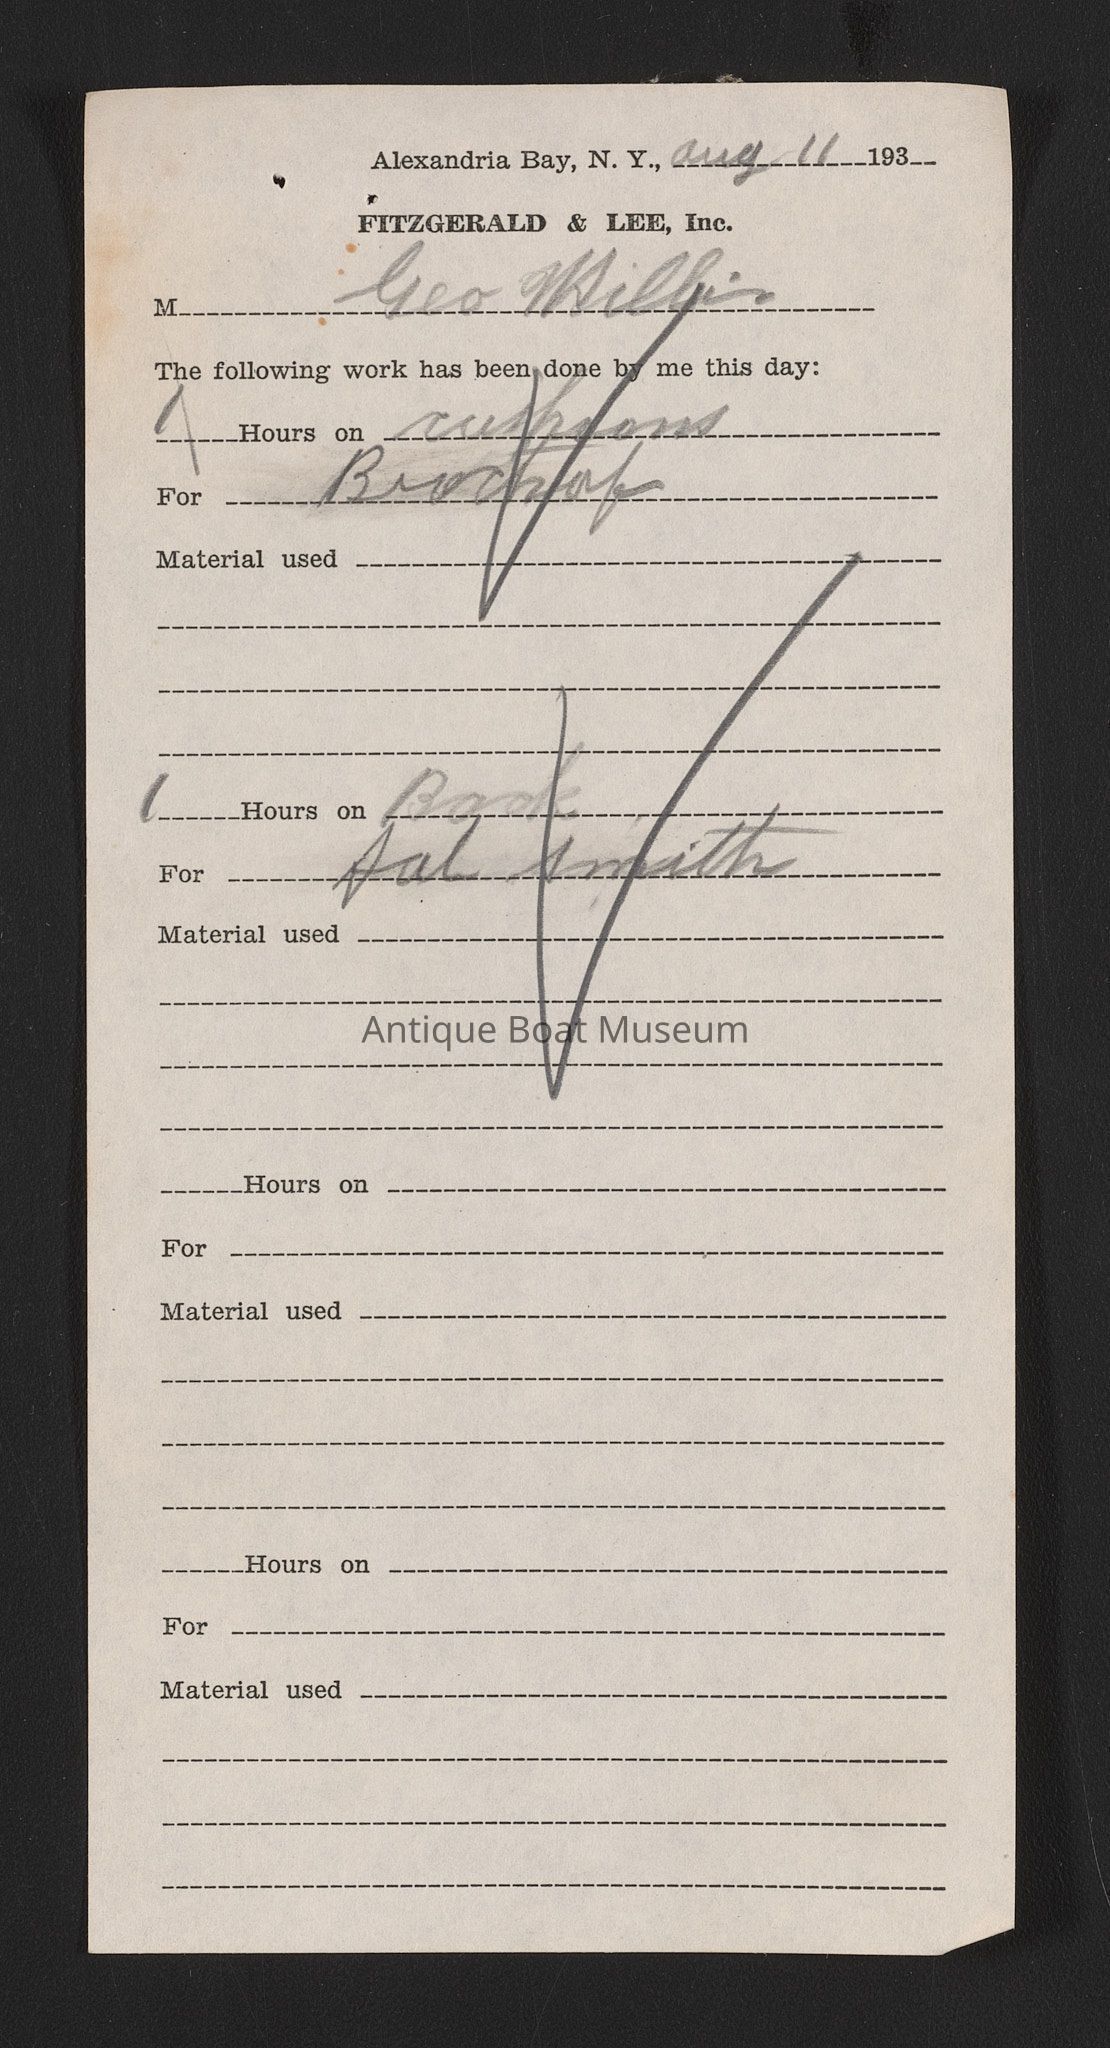 Alexandria Bay, N. Y., Aug 11 193
FITZGERALD & LEE, Inc.
M Geo Willis
The following work has been done by me this day:
1 Hours on cushions
For
Material used
1 Hours on Book
For Sal Smith
Material used
Antique Boat Museum
Hours on
For
Material used
Hours on
For
Material used